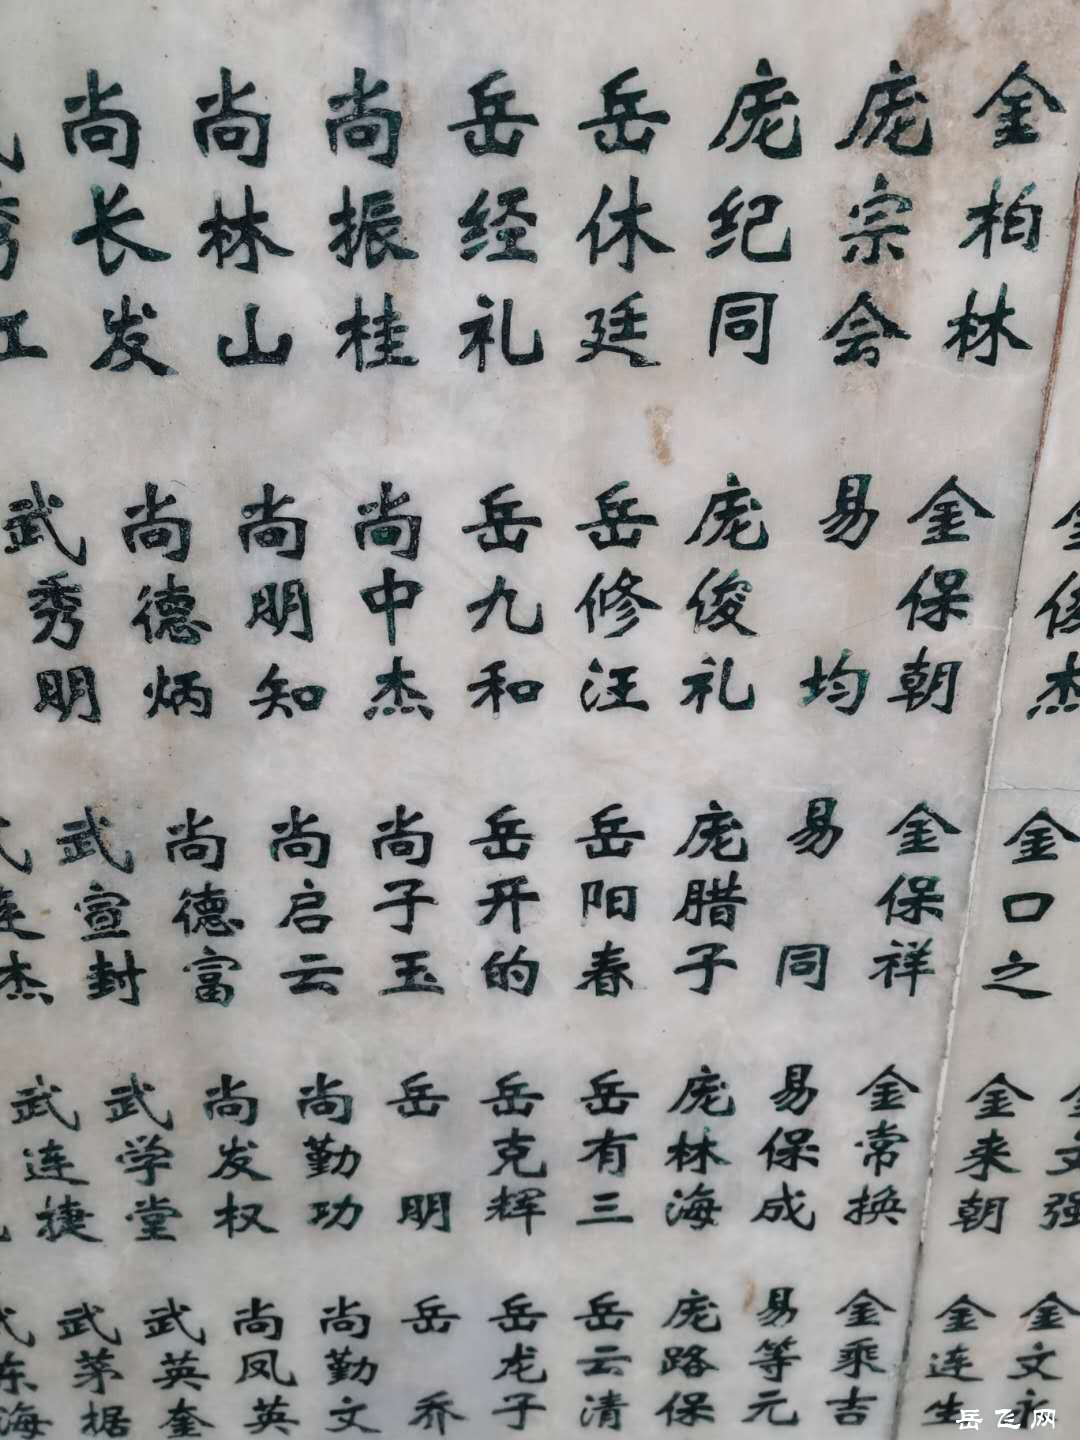 尚长发 尚林山 尚振桂 岳经礼 岳休廷 庞纪同 庞宗会 金柏林
武秀明 尚德炳 尚明知 尚中杰 岳九和 岳修汪 庞俊礼 易均 金保朝
武宣封 尚德富 尚启云 尚子玉 岳开的 岳阳春 庞腊子 易同 金保祥 金口之
武连捷 武学堂 尚发权 尚勤功 岳明 岳克辉 岳有三 庞林海 易保成 金常换 金来朝 金文强
武茅据 武英奎 尚凤英 尚勤文 岳乔 岳龙子 岳云清 庞路保 易等元 金乘吉 金连生 金文
岳飞网